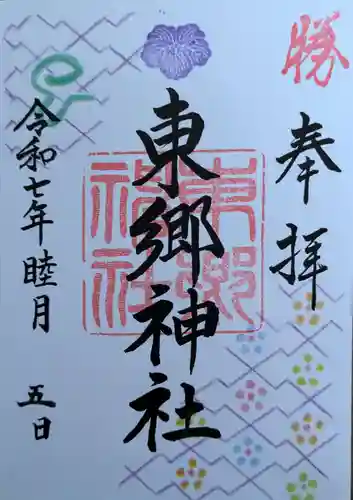 勝
奉拝
東郷神社
東郷神社
令和七年睦月 五日